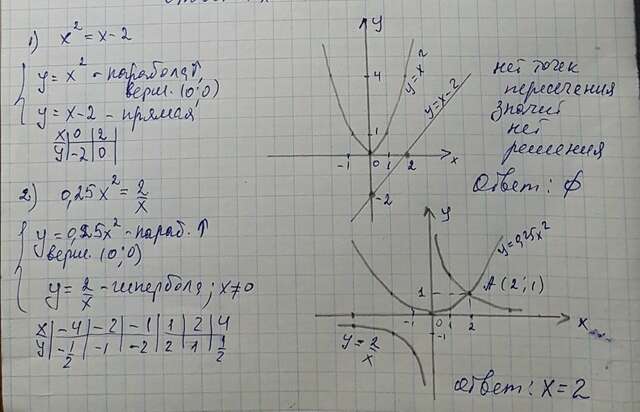 1) x² = x-2
y = x² - парабола↑
верш. (0;0)
y = x-2 - прямая
x | 0 | 2
y | -2 | 0
y
4
1
-1
0
1
2
x
-2
y=x²
y=x-2
нет точек
пересечения
значит
нет
решения
Ответ: ∅
2) 0,25x² = 2/x
y = 0,25x² - параб. ↑
верш. (0;0)
y = 2/x - гипербола; x≠0
x | -4 | -2 | -1 | 1 | 2 | 4
y | -1/2 | -1 | -2 | 2 | 1 | 1/2
y
y=0,25x²
1
A(2;1)
-1
0
1
2
x
-1
y = 2/x
Ответ: x=2